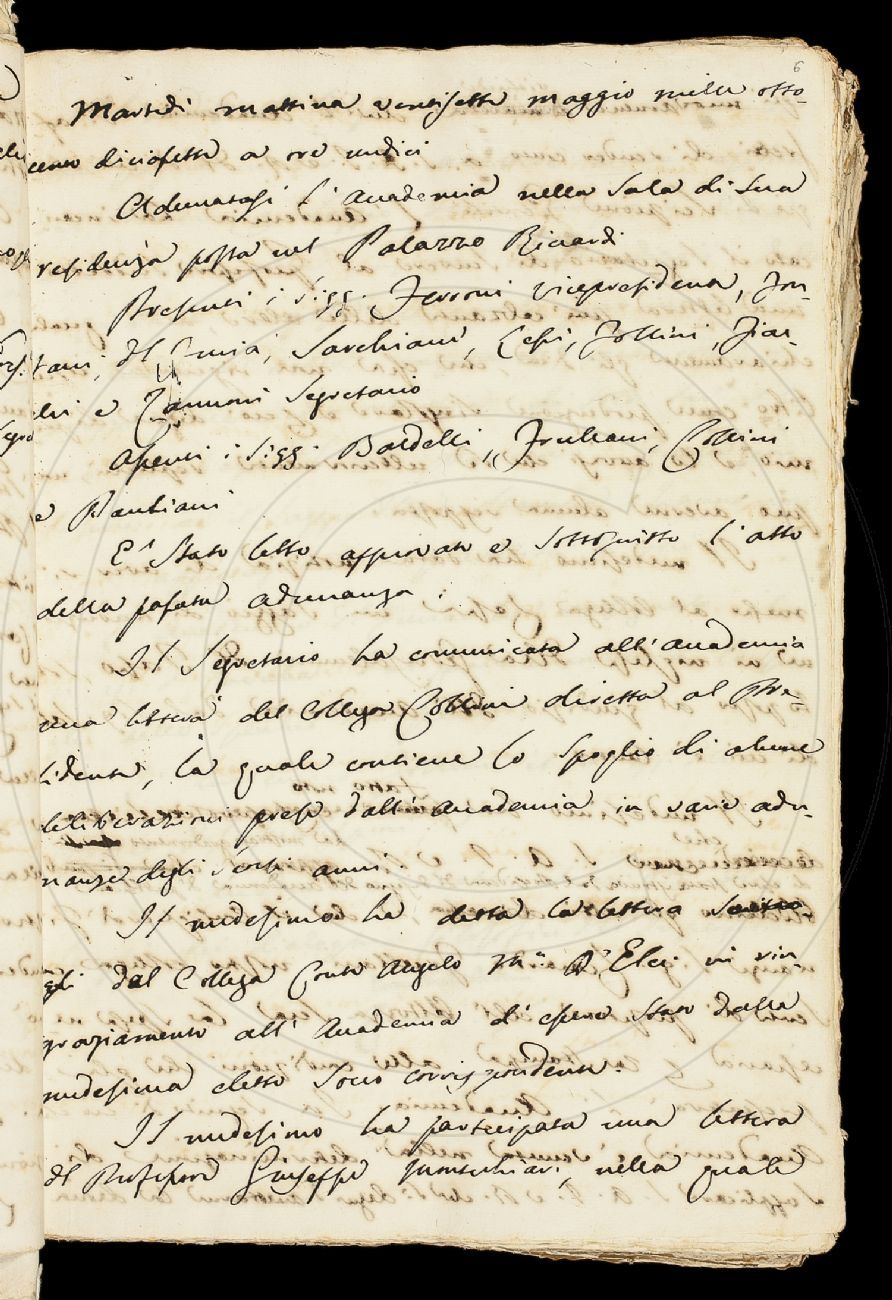 6
Martedì mattina ventisette maggio mille otto-
cento diciasette a ore undici
Adunatasi l'Accademia nella Sala di sua
residenza posta nel Palazzo Riccardi
Presenti i sigg. Ferroni Vicepresidente, Fon-
tani, del Furia, Sarchiani, Lessi, Follini, Fiac-
chi e Zannoni Segretario
Assenti i Sigg. Bardelli, Frullani, Collini
e
E' stato letto approvato e sottoscritto l'atto
della passata adunanza.
Il Segretario ha comunicata all'Accademia
una lettera del Collega Collini diretta al Pre-
sidente, la quale contiene lo spoglio di alcune
deliberazioni prese dall'Accademia in varie adu-
nanze degli scorsi anni.
Il medesimo ha letta la lettera
gli dal Collega Conte Angelo Mª D'Elci in rin-
graziamento all'Accademia d'essere stato dalla
medesima eletto Socio corrispondente.
Il medesimo ha partecipata una lettera
del Professore Giuseppe, nella quale